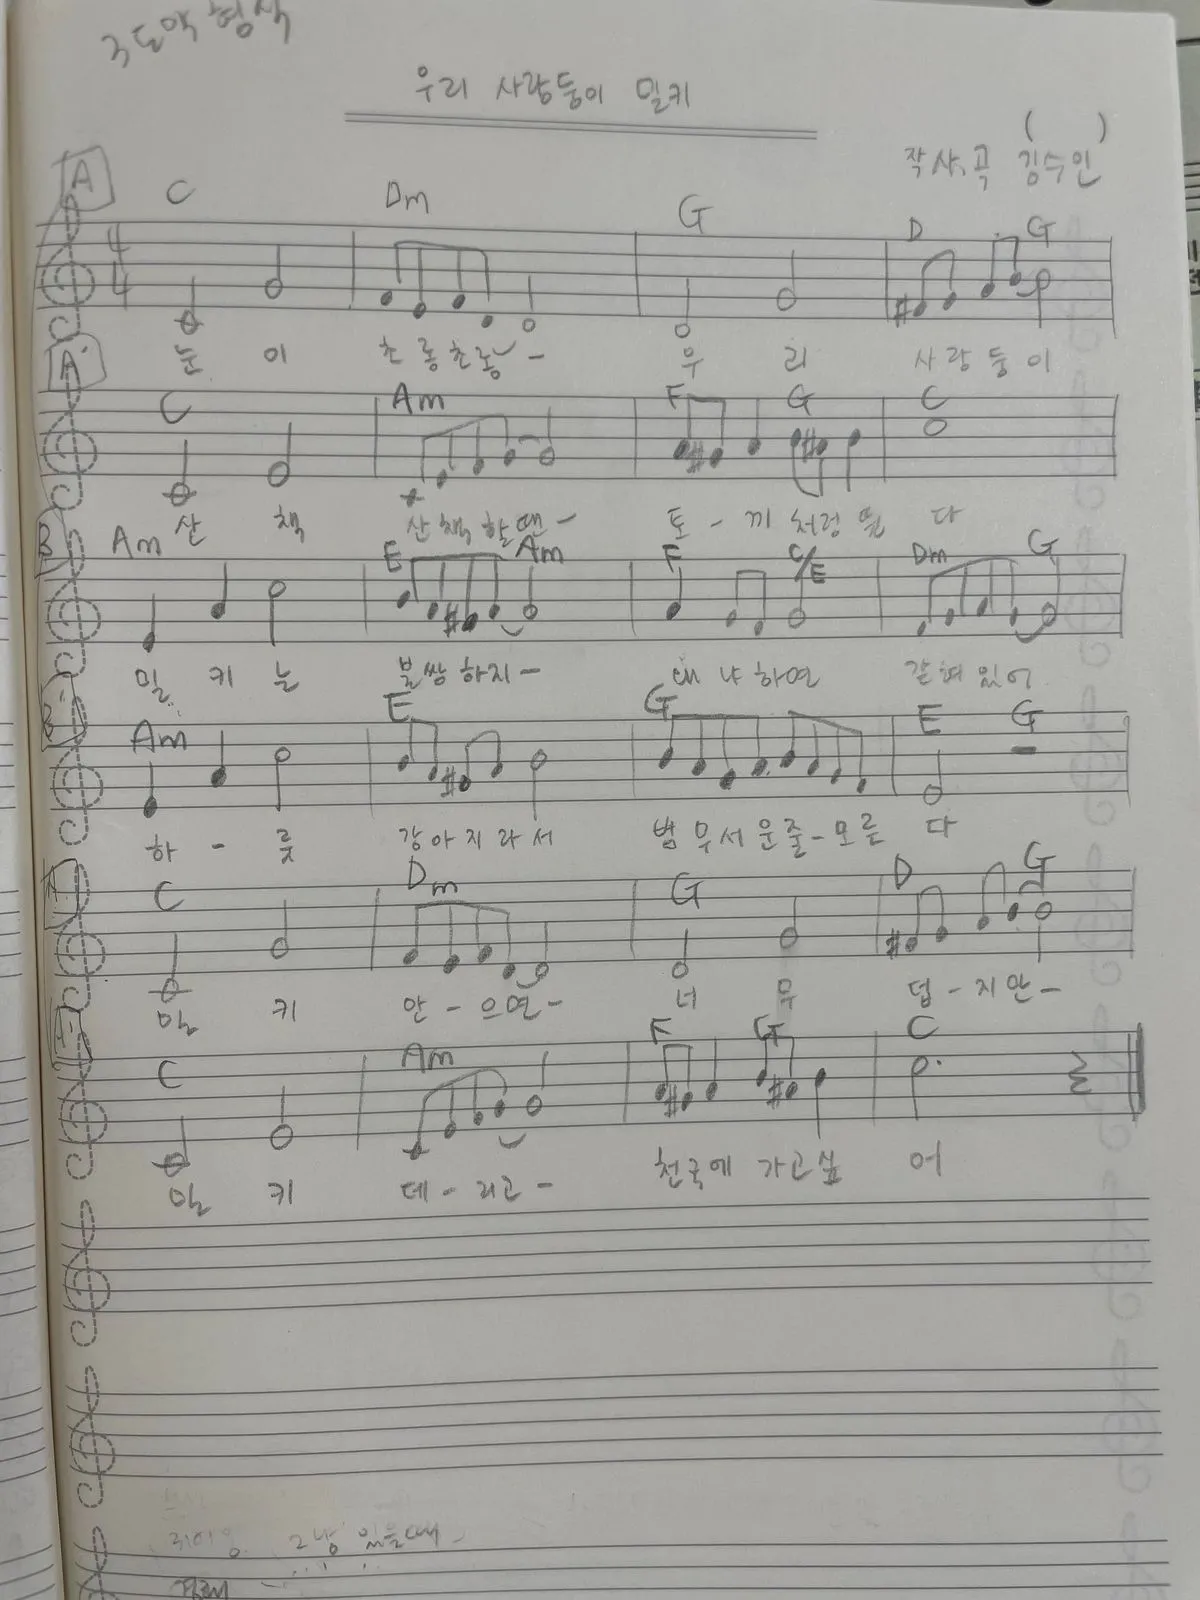 3도막형식
우리 사랑둥이 밀키
( )
작사.곡 김수인
A C Dm G D G
4
4
눈 이 초롱초롱 - 우 리 사랑둥이
A' C Am F G C
산 책 산책할땐 - 토 - 끼처럼 뛴 다
B Am E Am F C/E Dm G
밀 키 는 불쌍하지 - 매냐하면 갇혀있어
Am E G E G
하 - 룻 강아지라서 범무서운줄 - 모른 다
C Dm G D G
밀 키 안 - 으면 - 너 무 덥 - 지만 -
C Am F G C
밀 키 데 - 리고 - 천국에 가고싶 어
그냥 있을때